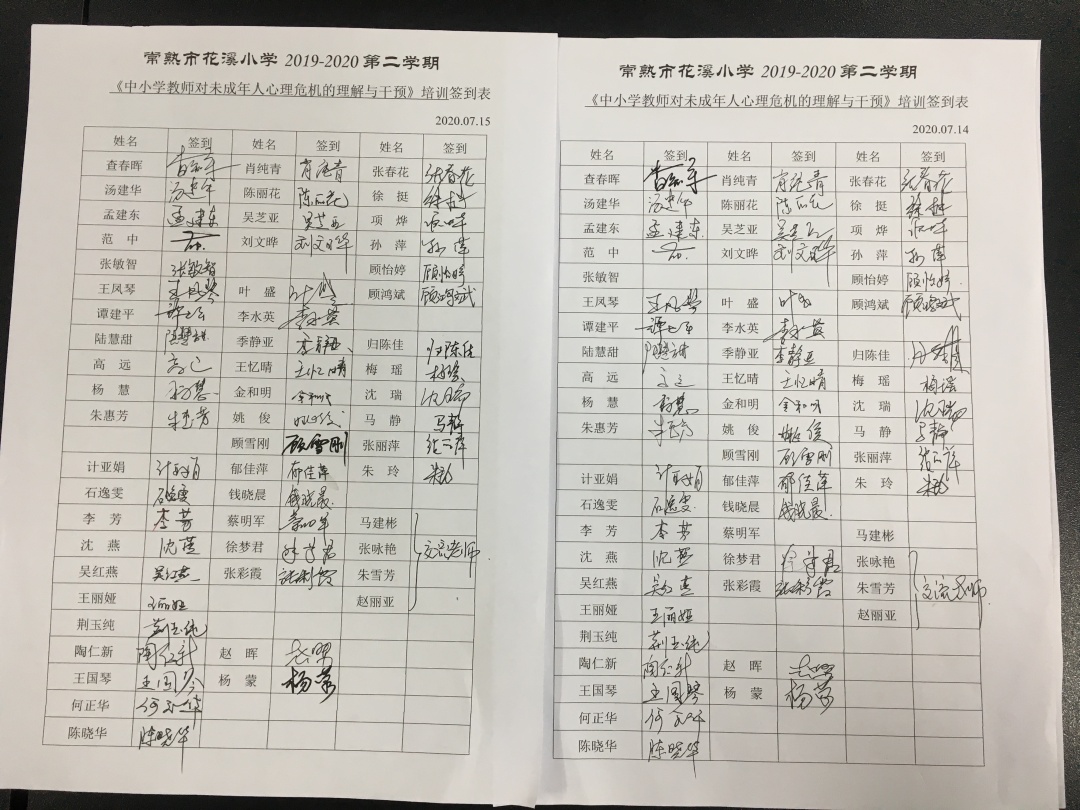 常熟市花溪小学 2019-2020 第二学期
《中小学教师对未成年人心理危机的理解与干预》培训签到表
2020.07.15
姓名 签到 姓名 签到 姓名 签到
查春晖 肖纯青 肖纯青 张春花 张春花
汤建华 汤建华 陈丽花 陈丽花 徐挺 徐挺
孟建东 孟建东 吴芝亚 吴芝亚 项烨
范中 刘文晔 刘文晔 孙萍 孙萍
张敏智 张敏智 顾怡婷 顾怡婷
王凤琴 王凤琴 叶盛 叶盛 顾鸿斌 顾鸿斌
谭建平 李水英 李水英
陆慧甜 陆慧甜 季静亚 季静亚 归陈佳 归陈佳
高远 高远 王忆晴 王忆晴 梅瑶
杨慧 杨慧 金和明 金和明 沈瑞 沈瑞
朱惠芳 姚俊 马静 马静
顾雪刚 顾雪刚 张丽萍 张丽萍
计亚娟 计亚娟 郁佳萍 郁佳萍 朱玲 朱玲
石逸雯 石逸雯 钱晓晨 钱晓晨
李芳 李芳 蔡明军 马建彬
沈燕 沈燕 徐梦君 徐梦君 张咏艳 交流老师
吴红燕 吴红燕 张彩霞 张彩霞 朱雪芳
王丽娅 王丽娅 赵丽亚
荆玉纯 荆玉纯
陶仁新 陶仁新 赵晖
王国琴 王国琴 杨蒙 杨蒙
何正华 何正华
陈晓华 陈晓华
常熟市花溪小学 2019-2020 第二学期
《中小学教师对未成年人心理危机的理解与干预》培训签到表
2020.07.14
姓名 签到 姓名 签到 姓名 签到
查春晖 肖纯青 肖纯青 张春花 张春花
汤建华 汤建华 陈丽花 陈丽花 徐挺 徐挺
孟建东 孟建东 吴芝亚 项烨
范中 刘文晔 刘文晔 孙萍 孙萍
张敏智 顾怡婷 顾怡婷
王凤琴 王凤琴 叶盛 叶盛 顾鸿斌 顾鸿斌
谭建平 李水英 李水英
陆慧甜 陆慧甜 季静亚 季静亚 归陈佳
高远 高远 王忆晴 王忆晴 梅瑶 梅瑶
杨慧 杨慧 金和明 金和明 沈瑞 沈瑞
朱惠芳 姚俊 姚俊 马静 马静
顾雪刚 顾雪刚 张丽萍 张丽萍
计亚娟 计亚娟 郁佳萍 郁佳萍 朱玲 朱玲
石逸雯 石逸雯 钱晓晨 钱晓晨
李芳 李芳 蔡明军 马建彬
沈燕 沈燕 徐梦君 徐梦君 张咏艳
吴红燕 张彩霞 张彩霞 朱雪芳 交流老师
王丽娅 王丽娅 赵丽亚
荆玉纯 荆玉纯
陶仁新 陶仁新 赵晖
王国琴 王国琴 杨蒙 杨蒙
何正华 何正华
陈晓华 陈晓华